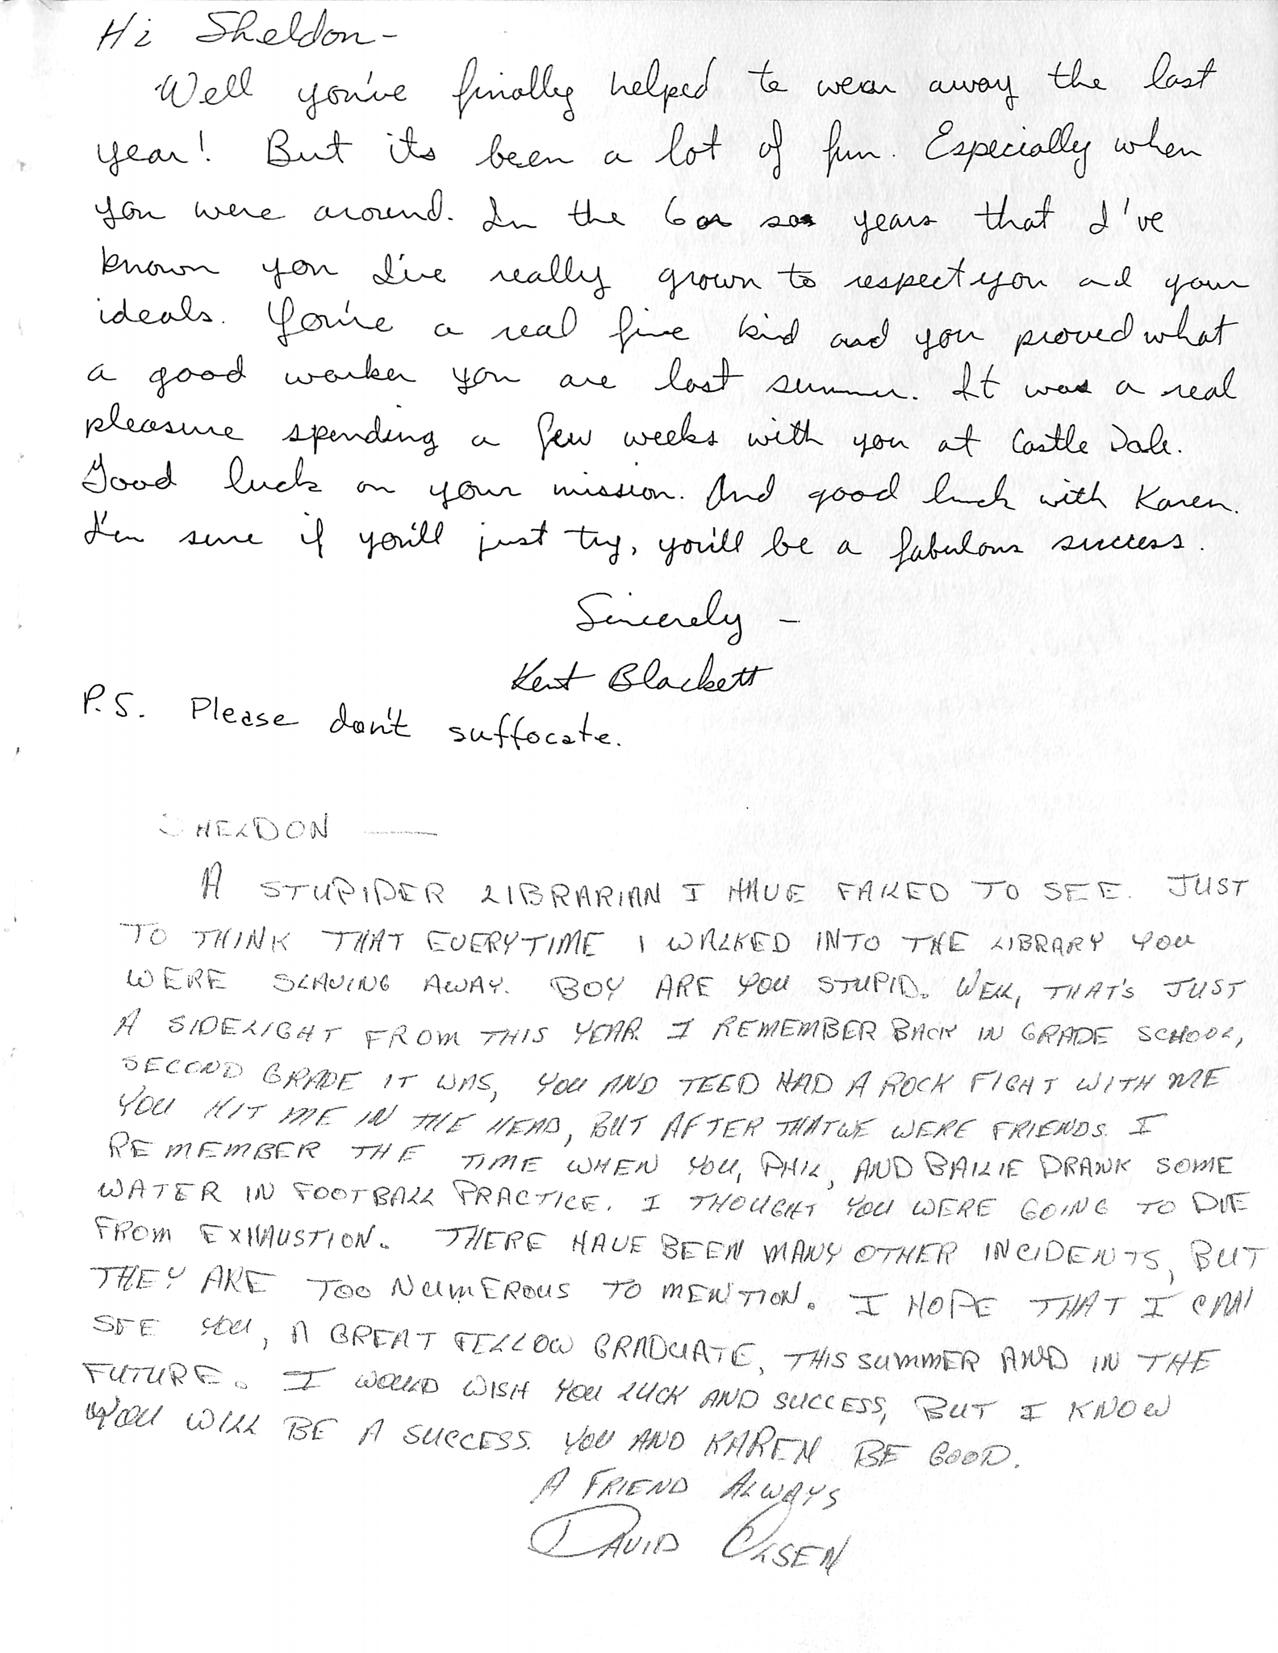 Hi Sheldon-
Well you've finally helped to wear away the last
year! But its been a lot of fun. Especially when
you were around. In the 6 or so years that I've
known you I've really grown to respect you and your
ideals. You're a real fine kid and you proved what
a good worker you are last summer. It was a real
pleasure spending a few weeks with you at Castle Dale.
Good luck on your mission. And good luck with Karen.
I'm sure if you'll just try, you'll be a fabulous success.
Sincerely -
Kent Blackett
P.S. Please don't suffocate.
SHELDON —
A STUPIDER LIBRARIAN I HAVE FAILED TO SEE. JUST
TO THINK THAT EVERYTIME I WALKED INTO THE LIBRARY YOU
WERE SLAVING AWAY. BOY ARE YOU STUPID. WELL, THAT'S JUST
A SIDELIGHT FROM THIS YEAR. I REMEMBER BACK IN GRADE SCHOOL,
SECOND GRADE IT WAS, YOU AND TEED HAD A ROCK FIGHT WITH ME
YOU HIT ME IN THE HEAD, BUT AFTER THAT WE WERE FRIENDS. I
REMEMBER THE TIME WHEN YOU, PHIL, AND BAILIE DRANK SOME
WATER IN FOOTBALL PRACTICE. I THOUGHT YOU WERE GOING TO DIE
FROM EXHAUSTION. THERE HAVE BEEN MANY OTHER INCIDENTS, BUT
THEY ARE TOO NUMEROUS TO MENTION. I HOPE THAT I CAN
SEE YOU, A GREAT FELLOW GRADUATE, THIS SUMMER AND IN THE
FUTURE. I WOULD WISH YOU LUCK AND SUCCESS, BUT I KNOW
YOU WILL BE A SUCCESS. YOU AND KAREN BE GOOD.
A FRIEND ALWAYS
DAVID OLSEN